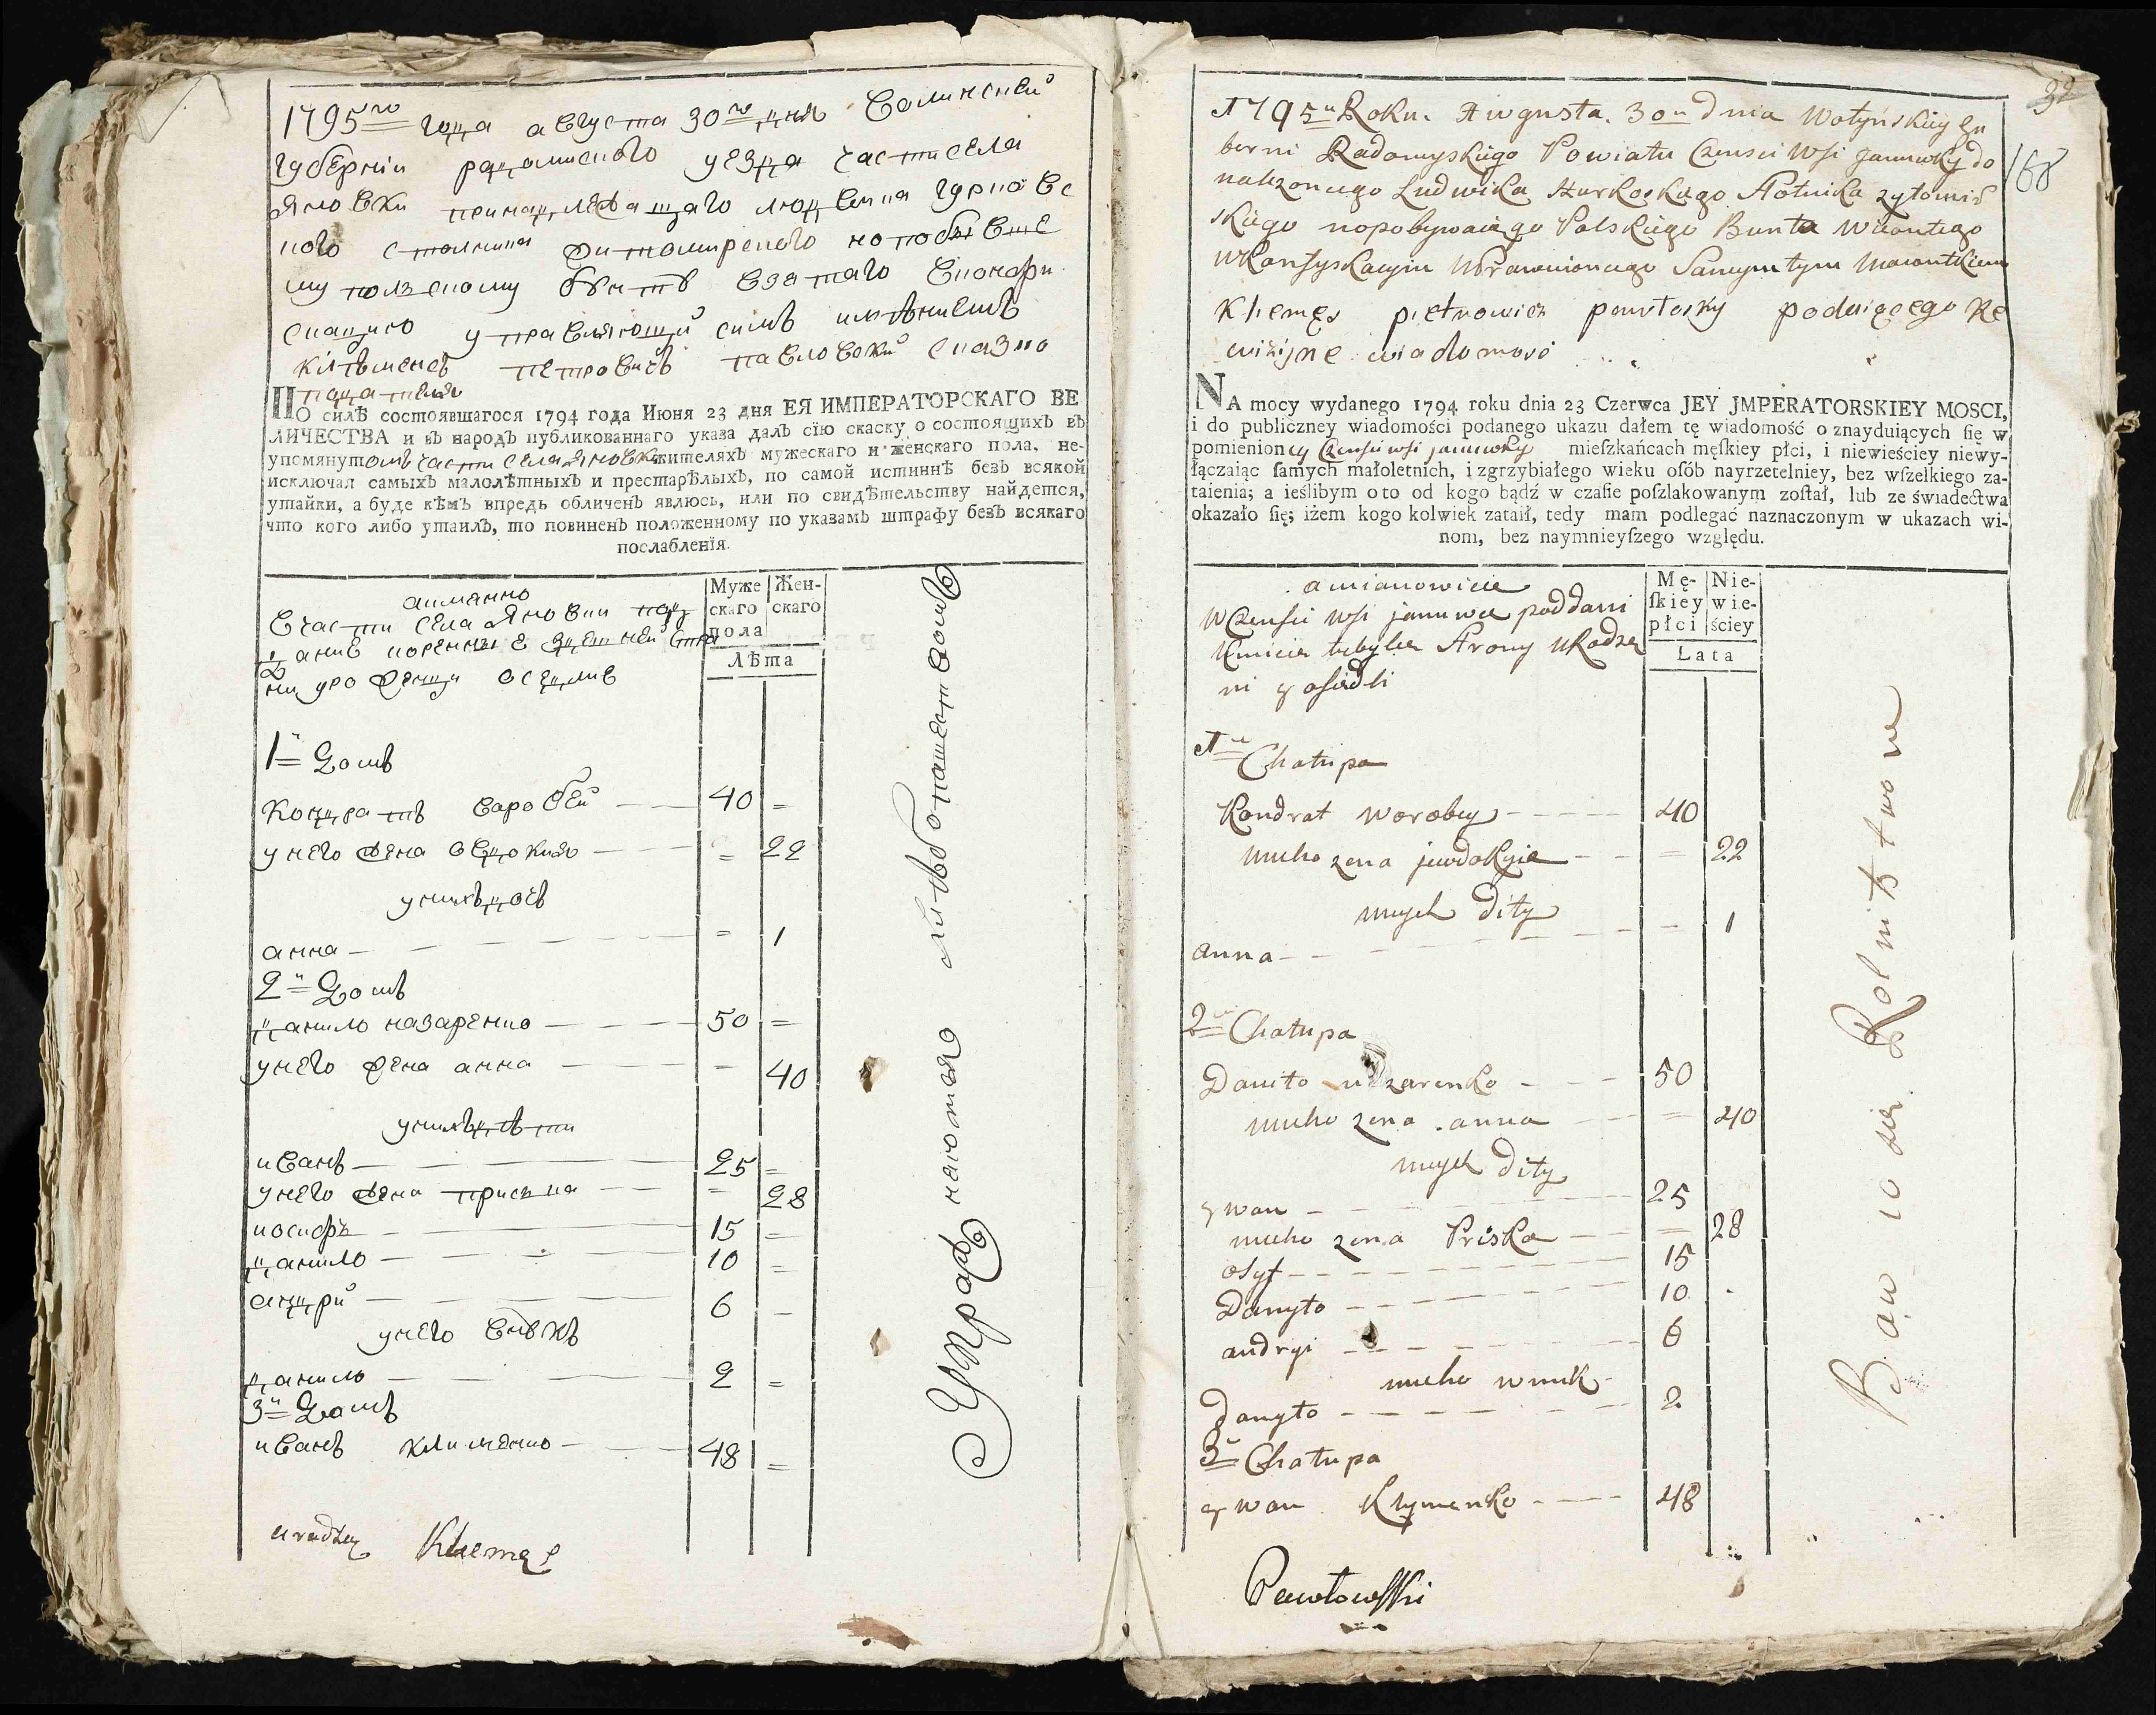 1795го года августа 30го дня волинской
губернїи радомиского уезда части села
Яновки принадлежащаго людвика гурковс
кого столника житомирского
му полскому бунтѣ взятаго вконфи
скацию управляющий симъ имѣниемъ
клѣменсъ петровичъ павловский сказко
податель
ПО силѣ состоявшагося 1794 года Июня 23 дня ЕЯ ИМПЕРАТОРСКАГО ВЕ
ЛИЧЕСТВА и въ народъ публикованнаго указа далъ сїю скаску о состоящихъ въ
упомянутомъ части села Яновки жителяхъ мужескаго и женскаго пола, не-
исключая самыхъ малолѣтныхъ и престарѣлыхъ, по самой истиннѣ безъ всякой
утайки, а буде кѣмъ впредь обличенъ явлюсь, или по свидѣтельству найдется,
что кого либо утаилъ, то повиненъ положенному по указамъ штрафу безъ всякаго
послабленїя.
аимянно
Вчасти села Яновки под
дание коренные здешней стра
ни урожденци оседлие
Муже
скаго
пола
Жен-
скаго
Лѣта
1й Домъ
Кондратъ воробей 40 =
у него жена овдокия = 22
у нихъ дочь
анна = 1
2й Домъ
данило назаренко 50 =
у него жена анна - 40
у нихъ дѣти
иванъ 25 =
у него жена приська = 28
иосифъ 15 =
данило 10 =
андрий 6 -
у него внукъ
данило 2 =
3й Домъ
иванъ клименко 48 =
упражняются хлебопашествомъ
Klemęs
32
168
1795u Roku. Augusta. 30u dnia Wołyńskiey Gu
berni Radomyskiego Powiatu Czensci Wsi Janowky do
nalezoncego Ludwika Hurkoskiego Stolnika zytomir
skiego Polskiego Bunta Wziontego
Klemęs pietrowicz pawłosky podaiącego Re
wizijne wiadomosć
NA mocy wydanego 1794 roku dnia 23 Czerwca JEY JMPERATORSKIEY MOSCI,
i do publiczney wiadomości podanego ukazu dałem tę wiadomość o znayduiących ſię w
pomienioney Czensci wsi janowky mieſzkańcach męſkiey płci, i niewieściey niewy-
łączaiąc ſamych małoletnich, i zgrzybiałego wieku oſób nayrzetelniey, bez wſzelkiego za-
taienia; a ieślibym o to od kogo bądź w czaſie poſzlakowanym został, lub ze świadectwa
okazało ſię; iżem kogo kolwiek zataił, tedy mam podlegać naznaczonym w ukazach wi-
nom, bez naymnieyſzego względu.
amianowicie
W Czensci Wsi janowce poddani
Kmiecie tubylce Strony Urodze
ni y osiedli
Mę-
ſkiey
płci
Nie-
wie-
ściey
Lata
1u Chałupa
Kondrat worobey 40
unieho zena jewdokyia = 22
unych dity
anna - 1
2u Chałupa
Daniło nazarenko 50
unieho zena anna = 40
unych dity
ywan 25
unieho zena Priska = 28
osyf 15
Danyło 10
andryi 6
unieho wnuk
danyło 2
3u Chałupa
ywan Klymenko 48
Bawio sie Rolnitstwom
Pawłowſki